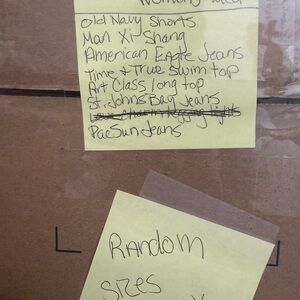 Old Navy Shorts
Man Xi Shang
American Eagle Jeans
Time & True Swim top
Art Class long top
St. Johns Bay Jeans
PacSun Jeans
RANDOM
SIZES